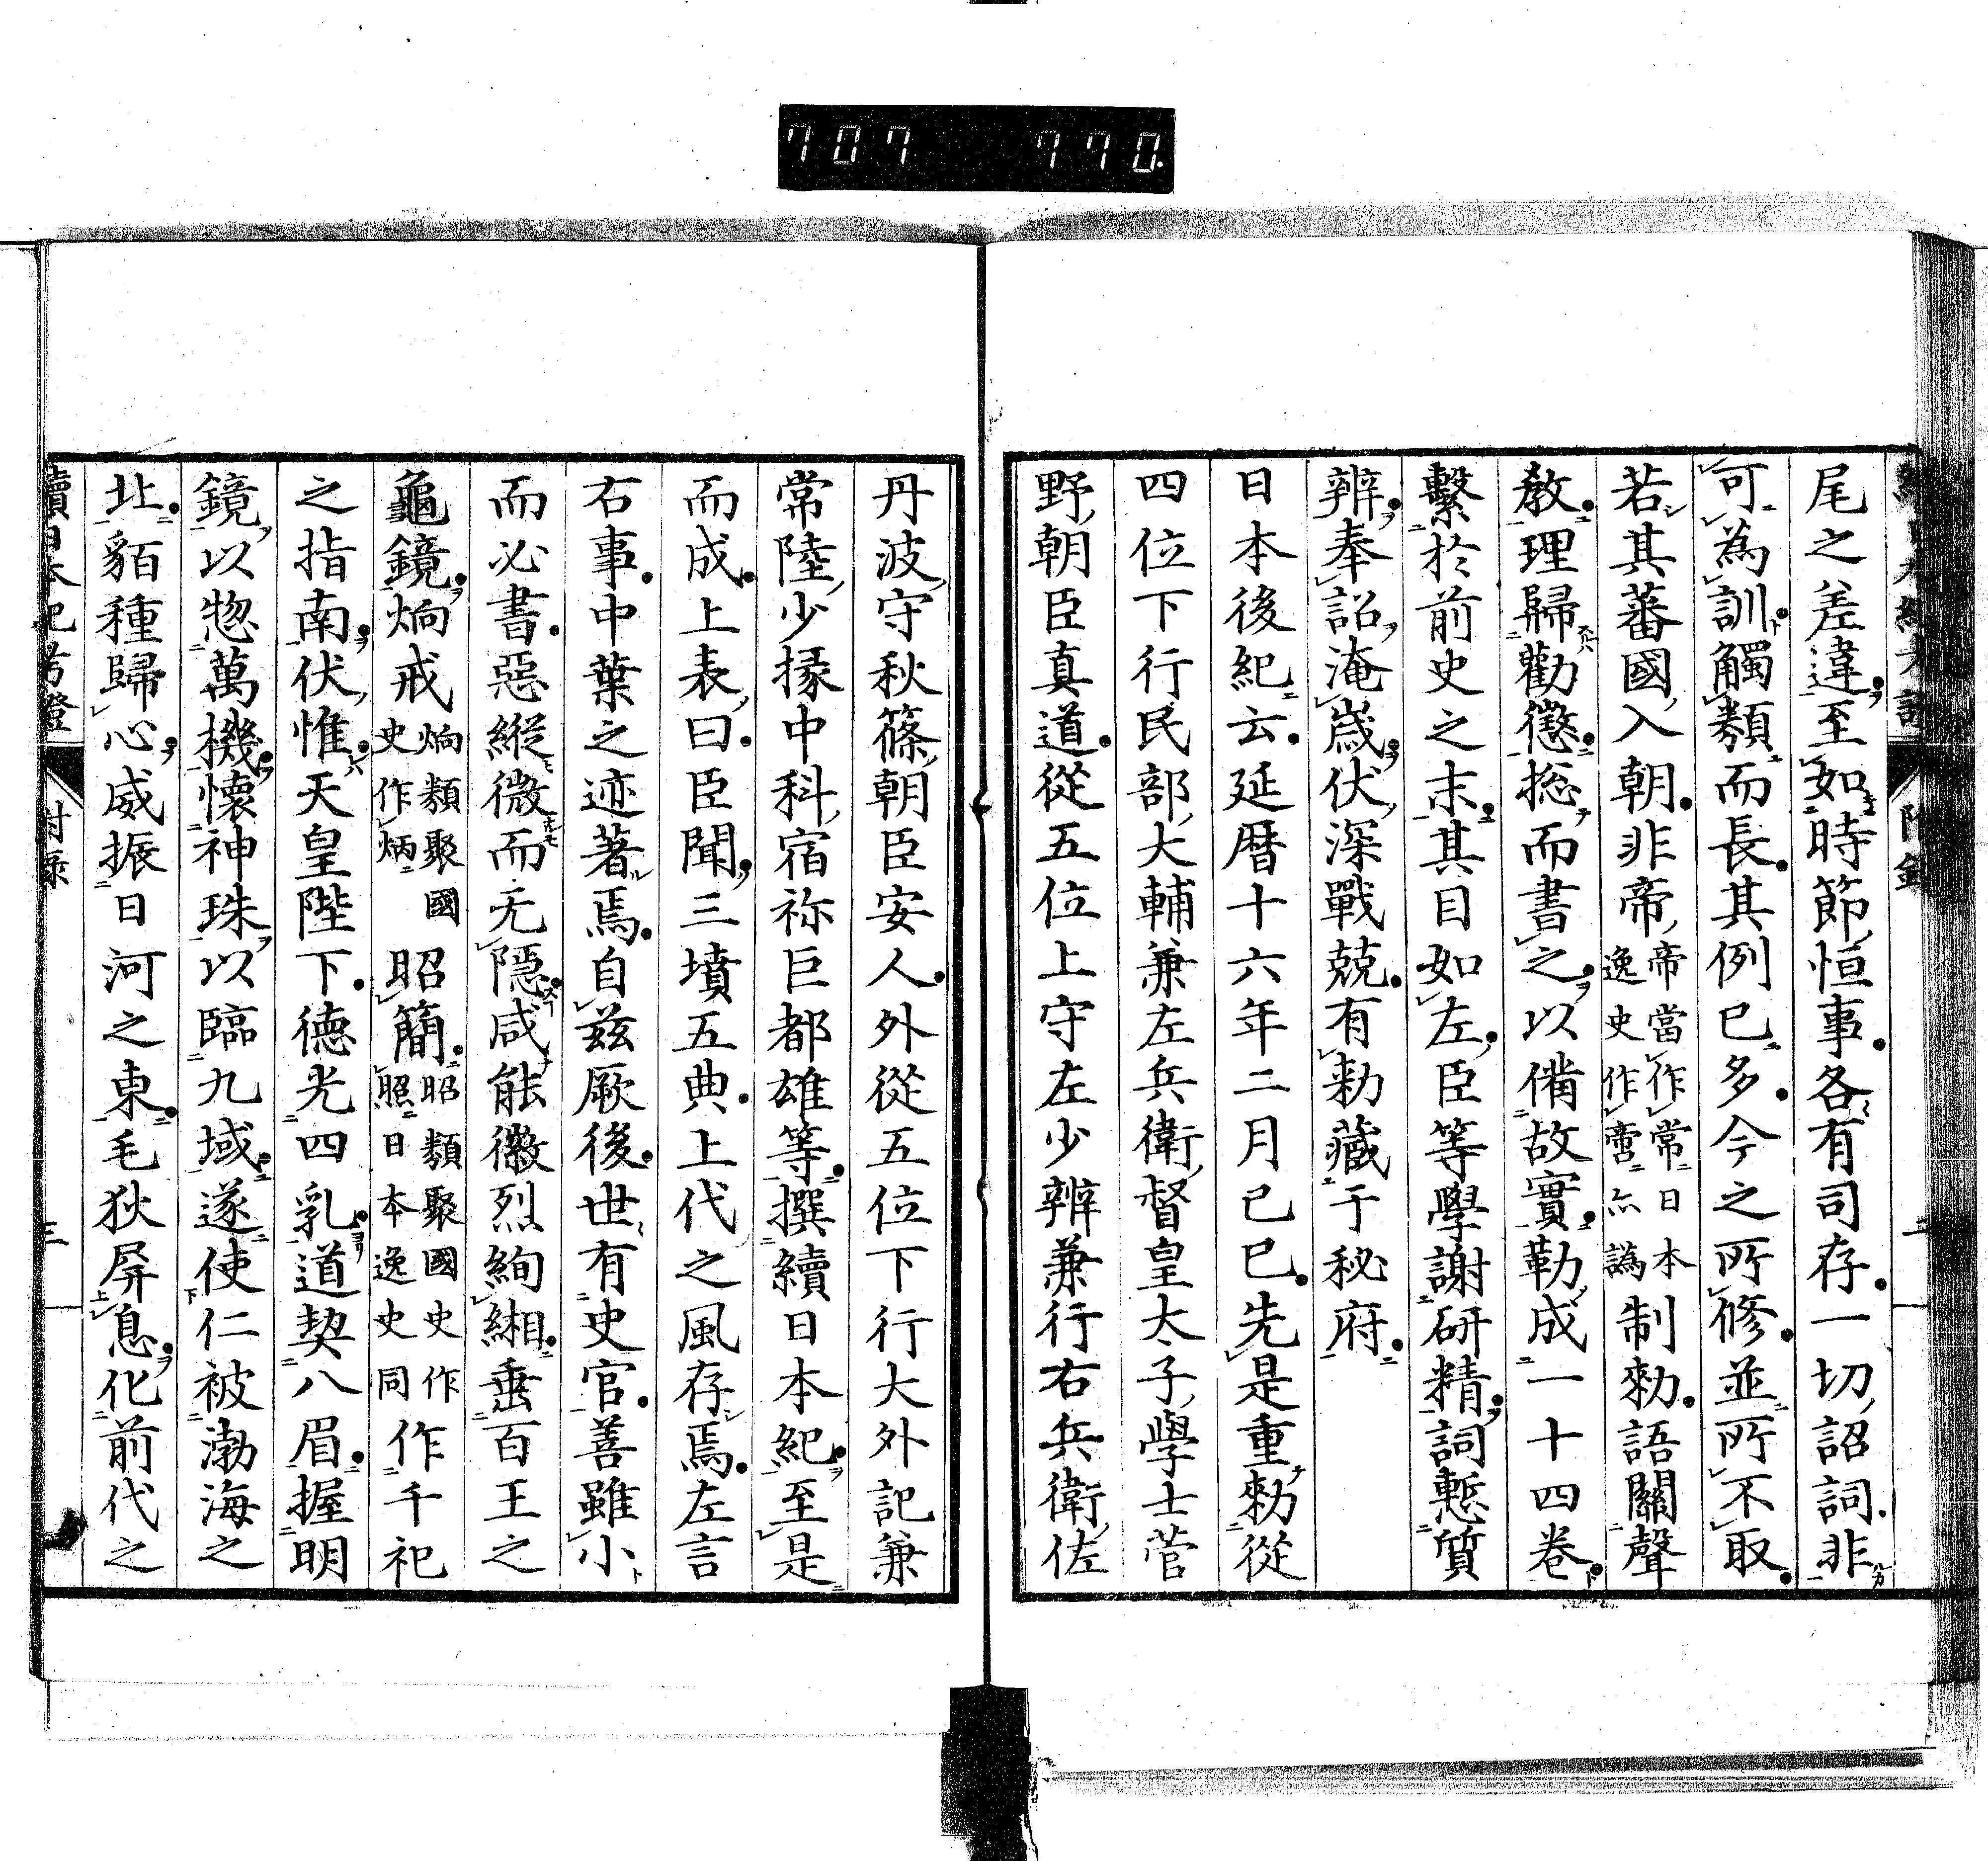 707 770
尾之差違至如時節恒事各有司存一切詔詞非
可為訓觸類而長其例已多今之所修並所不取
若其蕃國入朝非帝帝當作常日本逸史作啻亦譌制勅語關聲
教理歸勸懲捴而書之以備故實勒成一十四卷
繫於前史之末其目如左臣等學謝研精詞慙質
辨奉詔淹歳伏深戰兢有勅藏于秘府
日本後紀云延暦十六年二月己巳先是重勅從
四位下行民部大輔兼左兵衛督皇太子學士菅
野朝臣真道從五位上守左少辨兼行右兵衛佐
丹波守秋篠朝臣安人外從五位下行大外記兼
常陸少掾中科宿祢巨都雄等撰續日本紀至是
而成上表曰臣聞三墳五典上代之風存焉左言
右事中葉之迹著焉自茲厥後世有史官善雖小
而必書惡縱微而无隱咸能徽烈絢緗垂百王之
龜鏡炯戒炯類聚國史作炳昭簡昭類聚國史作照日本逸史同作千祀
之指南伏惟天皇陛下德光四乳道契八眉握明
鏡以惣萬機懷神珠以臨九域遂使仁被渤海之
北貊種歸心威振日河之東毛狄屏息化前代之
續日本紀考證 附錄 三